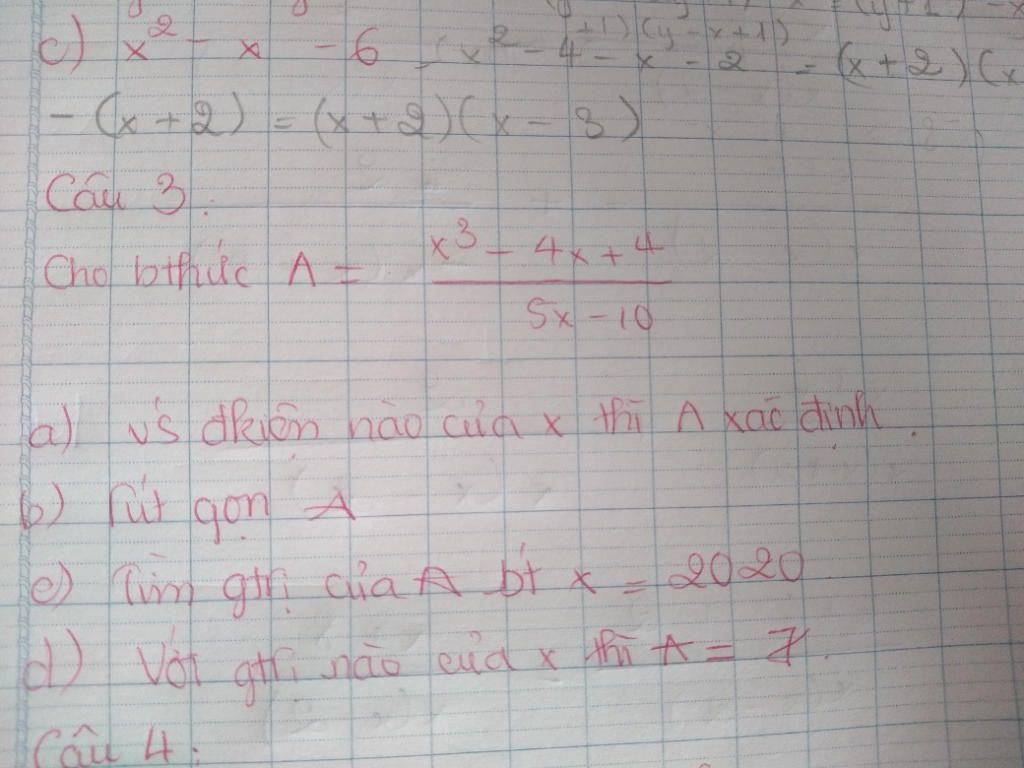 c) x² - x - 6 = x² - 4 - x - 2 = (x+2)(x
- (x+2) = (x+2)(x-3)
Câu 3.
Cho bthức A = \frac{x³ - 4x + 4}{5x - 10}
a) vs đkiện nào của x thì A xác định.
b) Rút gọn A
c) Tìm gtrị của A bt x = 2020
d) Với gtrị nào của x thì A = 7.
Câu 4: